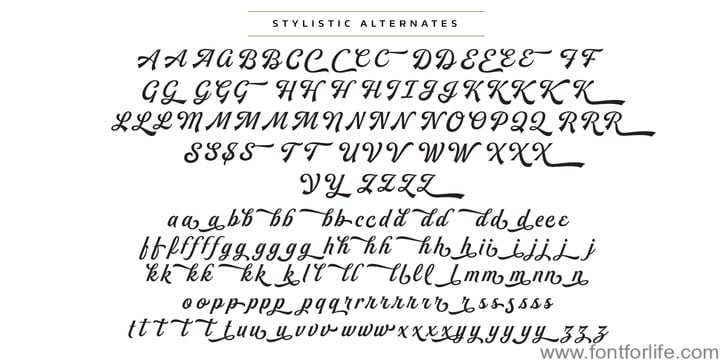 STYLISTIC ALTERNATES
A A A G B B C C C C C D D E E E E F F
G G G G G H H H H I I J J K K K K K
L L L M M M M M N N N N O O P Q Q R R R
S S $ S T T U V V V W W X X X
V Y Z Z Z Z
a a a b b b b b c c d d d d d d e e e
f f f f f f f g g g g g g h h h h h h h h i i i j j j j
k k k k k k k l l l l l b l l l m m m n n n
o o p p p p p p q q r r r r r r r r s s s s s s
t t t t t t t u u u v v v w w w x x x x y y y y y y z z z
www.fontforlife.com